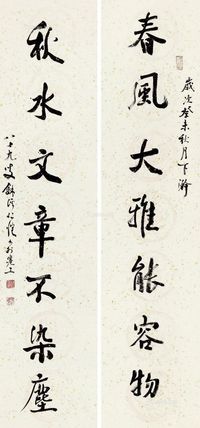 春風大雅能容物
歲次癸未秋月下瀚
秋水文章不染塵
八十九叟